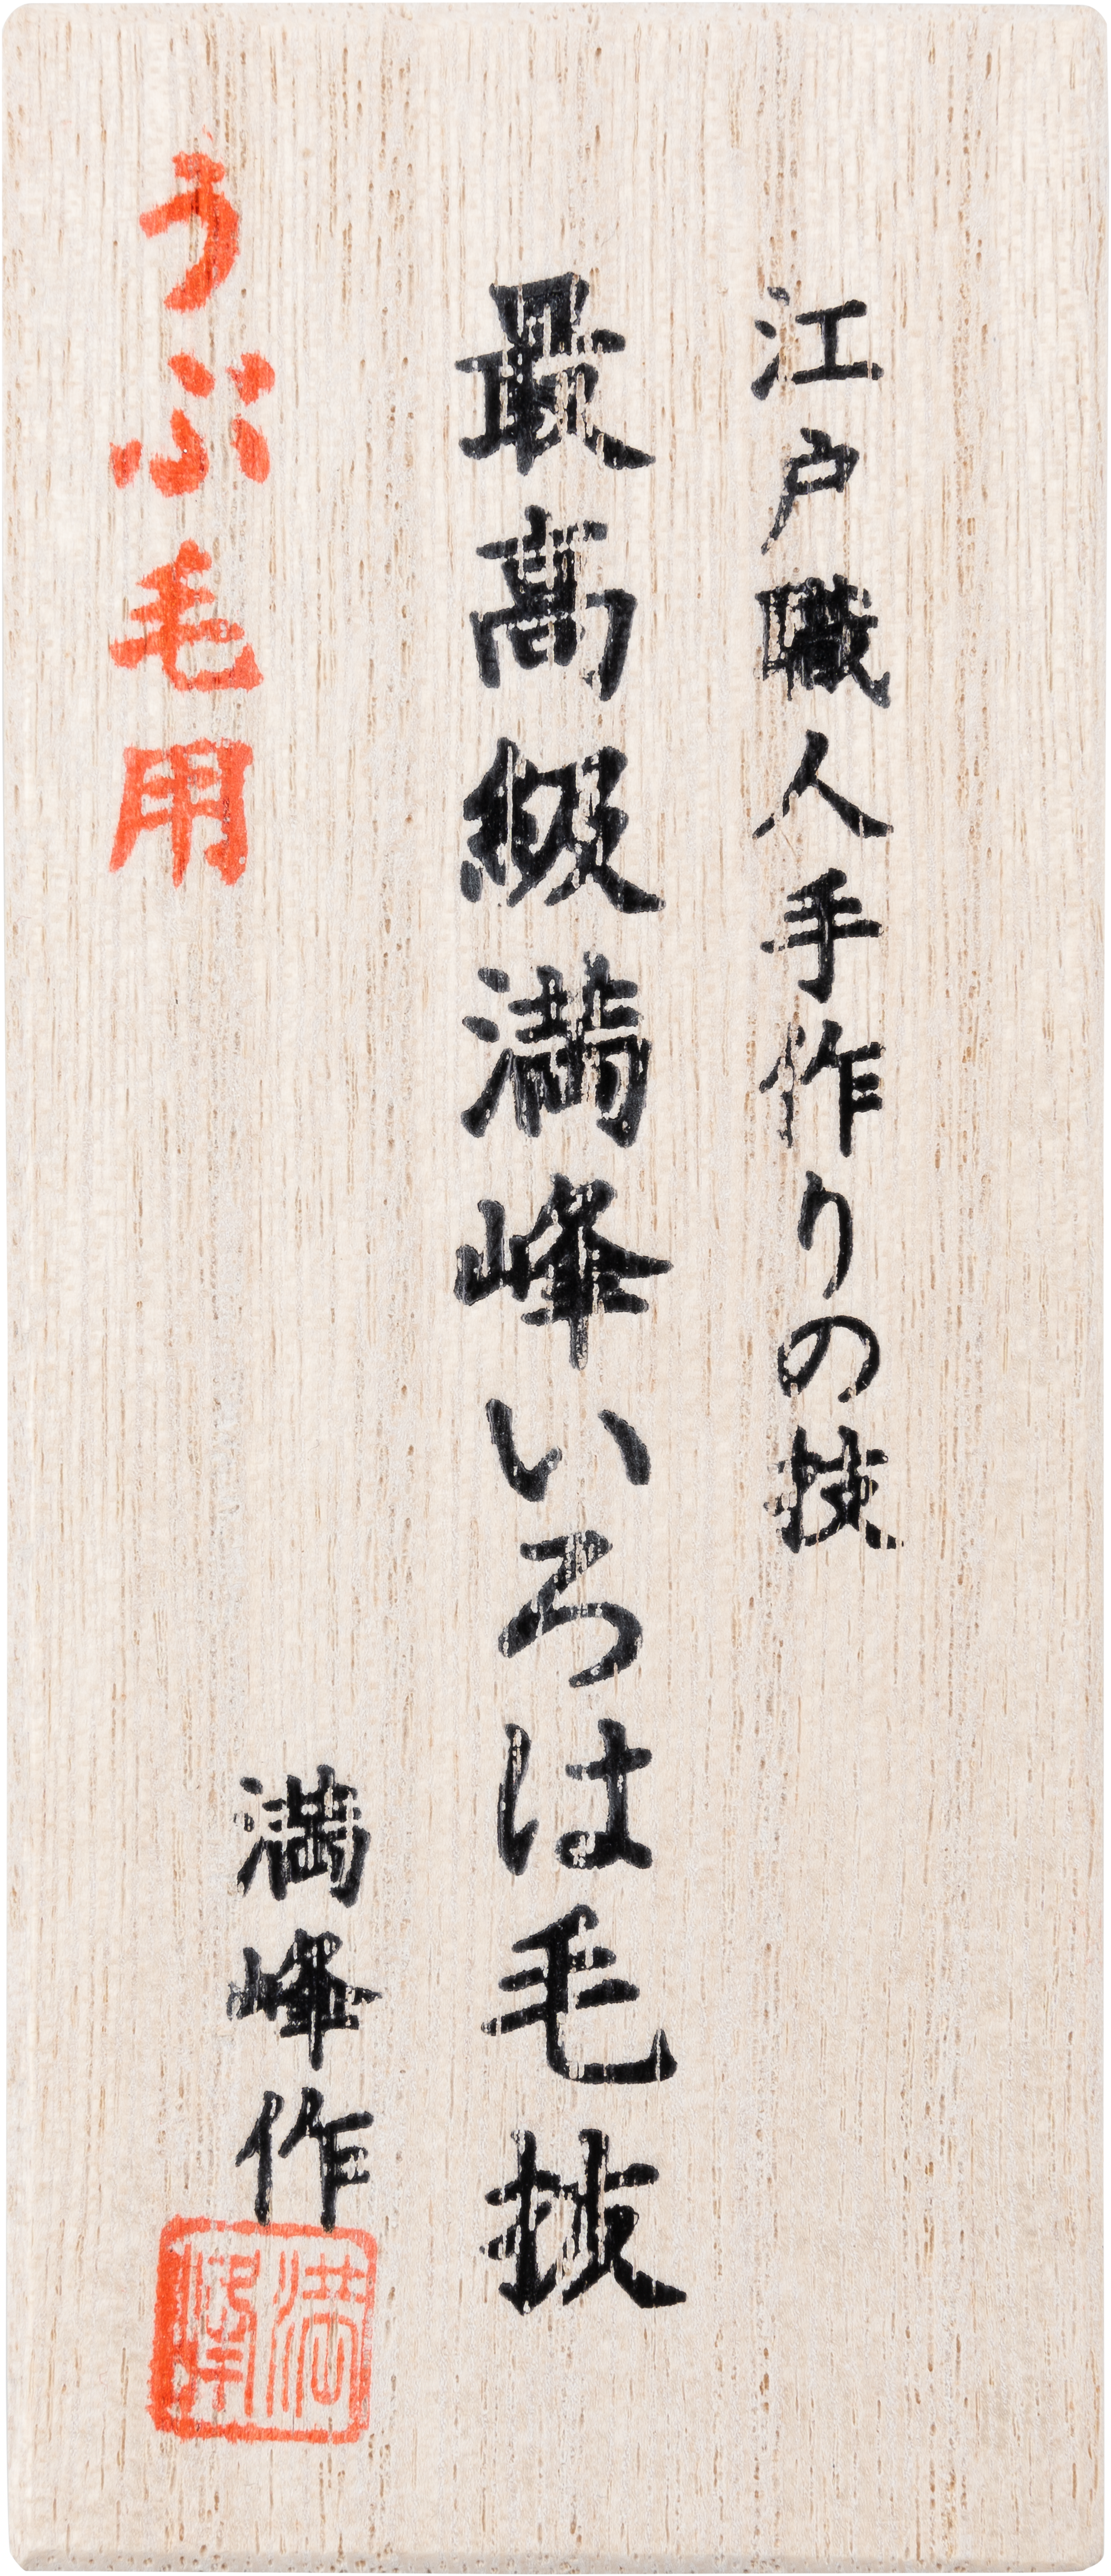 江戸職人手作りの技
最高級満峰いろは毛抜
うぶ毛用
満峰作
満峰